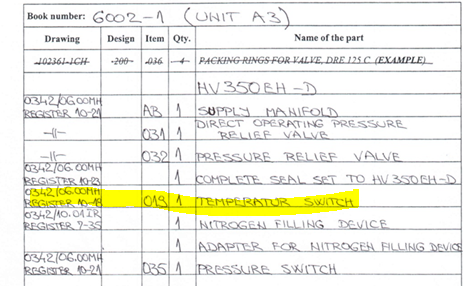 Book number: 6002-1 (UNIT A3)
Drawing Design Item Qty. Name of the part
102361-1CH -200- 036 4 PACKING RINGS FOR VALVE, DRE 125 C (EXAMPLE)
HV350EH-D
0342/06.00MH
REGISTER 10-21 AB 1 SUPPLY MANIFOLD
-||- 031 1 DIRECT OPERATING PRESSURE
RELIEF VALVE
-||- 032 1 PRESSURE RELIEF VALVE
0342/06.00MH
REGISTER 10-21 1 COMPLETE SEAL SET TO HV350EH-D
0342/06.00MH
REGISTER 10-18 019 1 TEMPERATUR SWITCH
0342/10.01IR
REGISTER 9-35 1 NITROGEN FILLING DEVICE
1 ADAPTER FOR NITROGEN FILLING DEVICE
0342/06.00MH
REGISTER 10-21 035 1 PRESSURE SWITCH